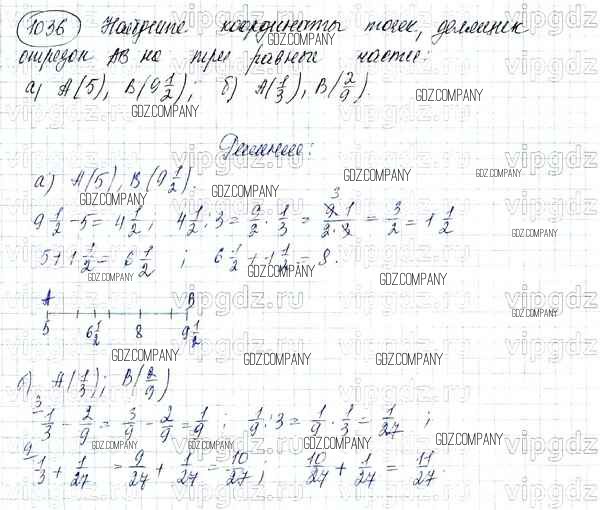 1036 Найдите координаты точек, делящих
отрезок AB на три равные части:
а) A(5), B(9 1/2); б) A(1/3), B(2/9).
GDZ.COMPANY
Решение:
а) A(5), B(9 1/2).
9 1/2 - 5 = 4 1/2; 4 1/2 : 3 = 9/2 · 1/3 = 9·1/2·3 = 3/2 = 1 1/2
5 + 1 1/2 = 6 1/2; 6 1/2 + 1 1/2 = 8.
A B
5 6 1/2 8 9 1/2
б) A(1/3); B(2/9)
1/3 - 2/9 = 3/9 - 2/9 = 1/9; 1/9 : 3 = 1/9 · 1/3 = 1/27;
1/3 + 1/27 = 9/27 + 1/27 = 10/27; 10/27 + 1/27 = 11/27.
vipgdz.ru